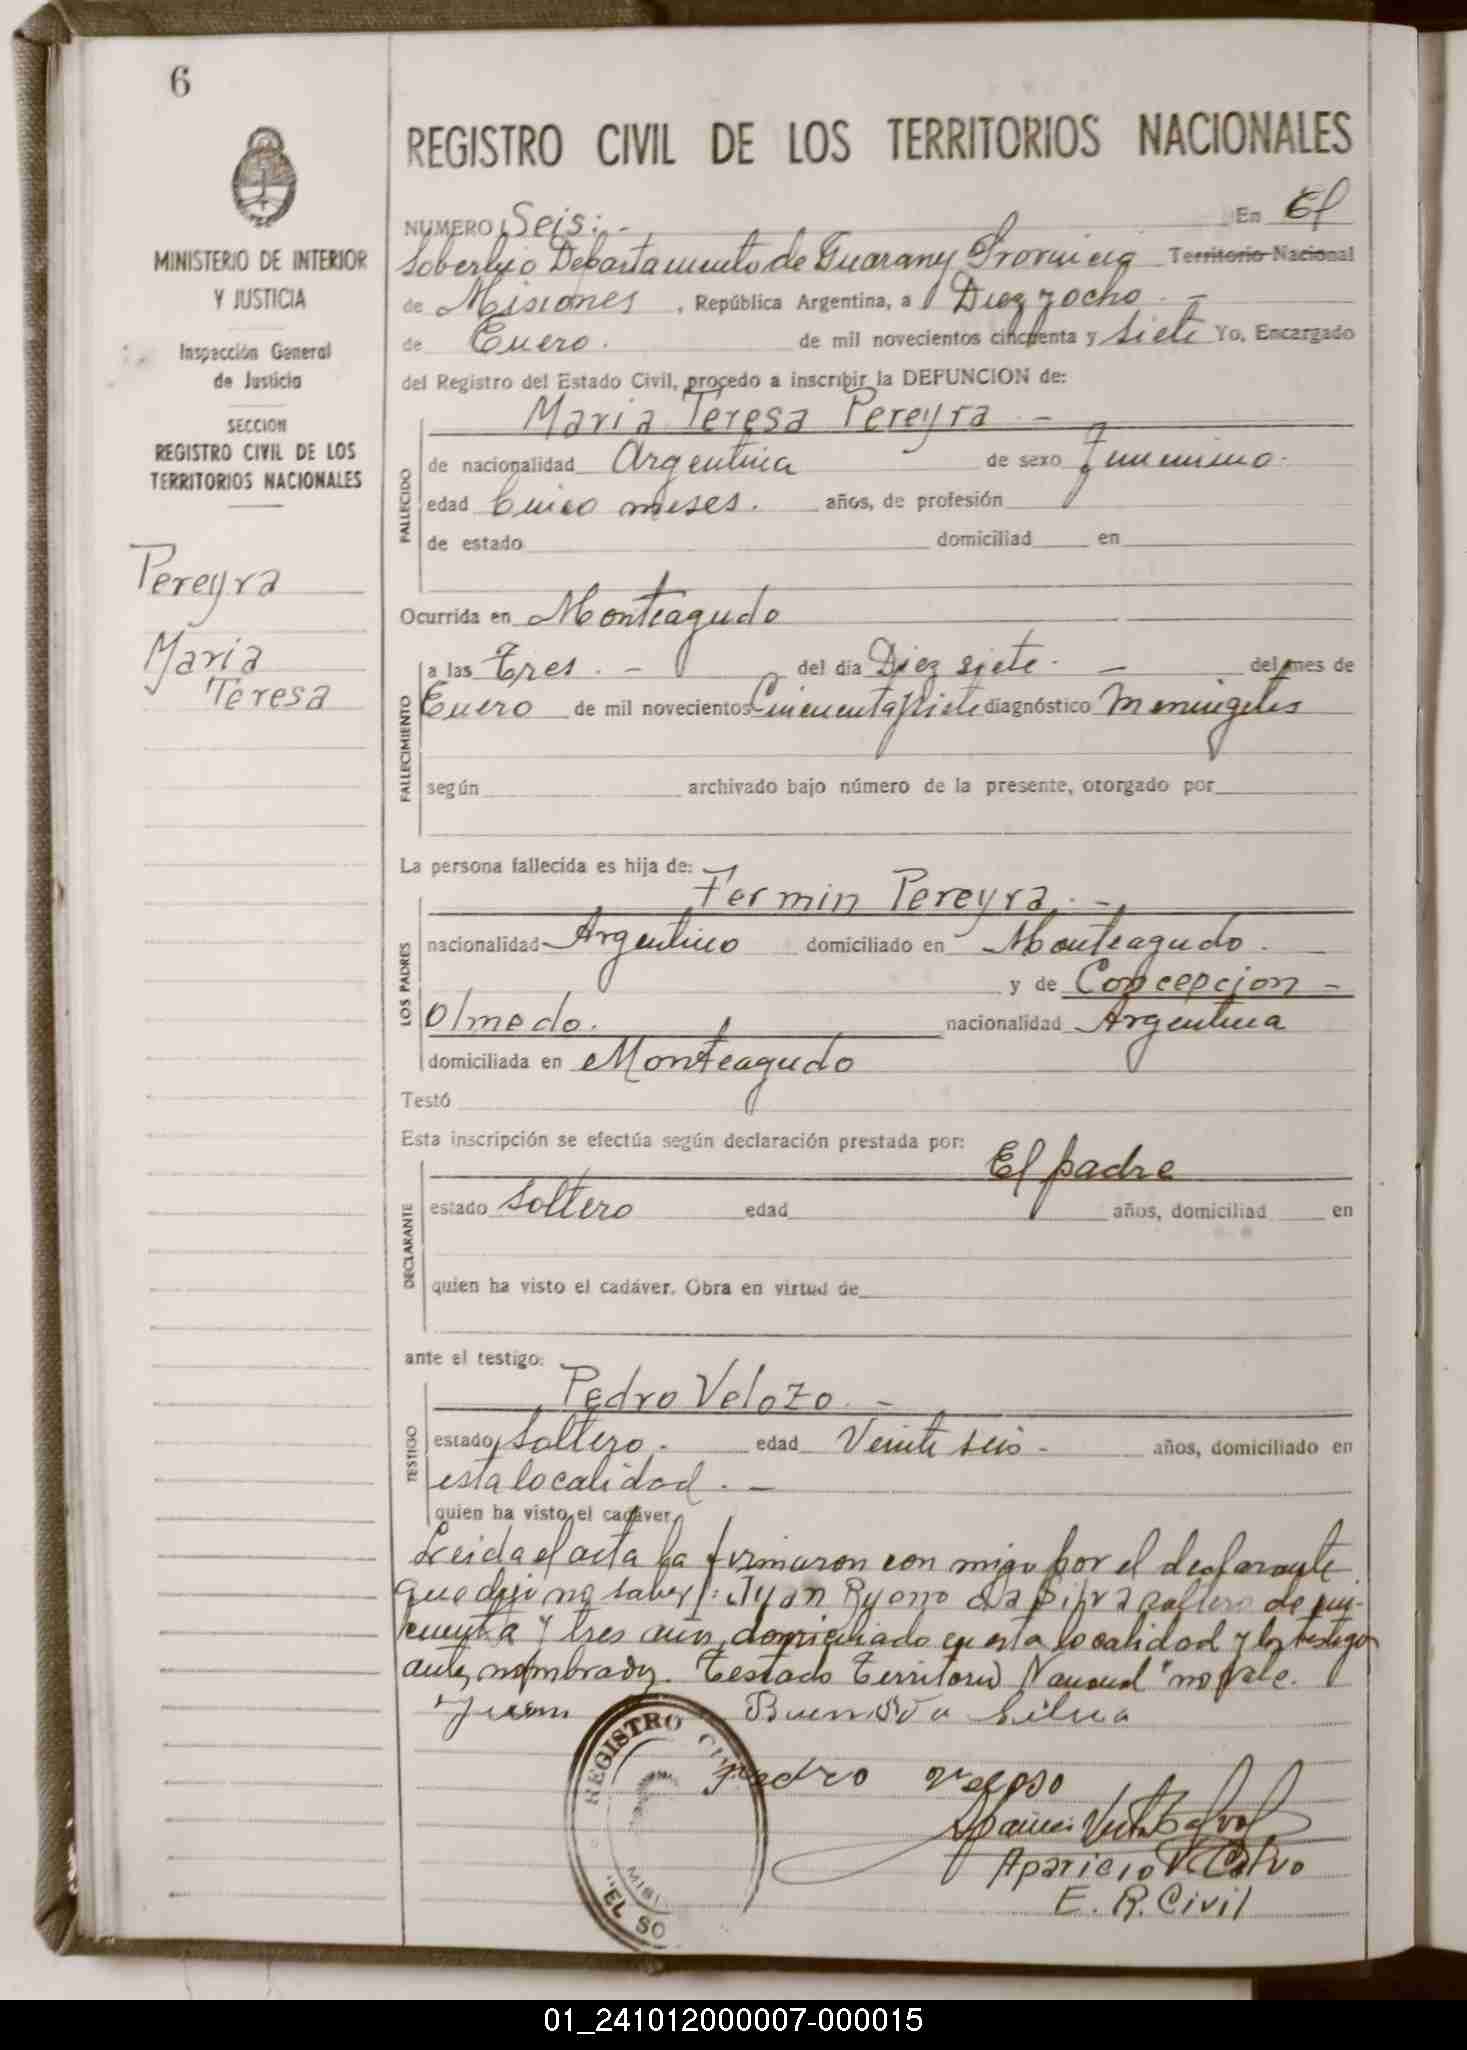 6
REGISTRO CIVIL DE LOS TERRITORIOS NACIONALES
MINISTERIO DE INTERIOR
Y JUSTICIA
Inspección General
de Justicia
SECCION
REGISTRO CIVIL DE LOS
TERRITORIOS NACIONALES
Pereyra
Maria
Teresa
NUMERO Seis:- En El
Soberbio Departamento de Guarany Provincia Territorio Nacional
de Misiones, República Argentina, a Diez y ocho. -
de Enero. de mil novecientos cincuenta y siete Yo, Encargado
del Registro del Estado Civil, procedo a inscribir la DEFUNCION de:
Maria Teresa Pereyra. -
FALLECIDO
de nacionalidad Argentina de sexo femenino.
edad Cinco meses. años, de profesión
de estado domiciliad en
Ocurrida en Monteagudo
FALLECIMIENTO
a las Tres. - del día Diez siete. - del mes de
Enero de mil novecientos Cincuenta y siete diagnóstico Meningetis
según archivado bajo número de la presente, otorgado por
La persona fallecida es hija de:
Fermin Pereyra. -
LOS PADRES
nacionalidad Argentino domiciliado en Monteagudo.
y de Concepcion -
Olmedo. nacionalidad Argentina
domiciliada en Monteagudo
Testó
Esta inscripción se efectúa según declaración prestada por:
El padre
DECLARANTE
estado Soltero edad años, domiciliad en
quien ha visto el cadáver. Obra en virtud de
ante el testigo:
Pedro Velozo. -
TESTIGO
estado Soltero. edad Veinte seis - años, domiciliado en
esta localidad. -
quien ha visto el cadáver.
Leida el acta la firmaron con migo por el declarante
que dijo no saber: Juan Bueno da Silva soltero de cin-
cuenta y tres años, domiciliado en esta localidad y los testigos
antes nombrados. Testado Territorio Nacional "no vale.
Juan Bueno da Silva
Pedro Veloso
Aparicio V. Calvo
E. R. Civil
REGISTRO CIVIL
MISI
"EL SO
01_241012000007-000015